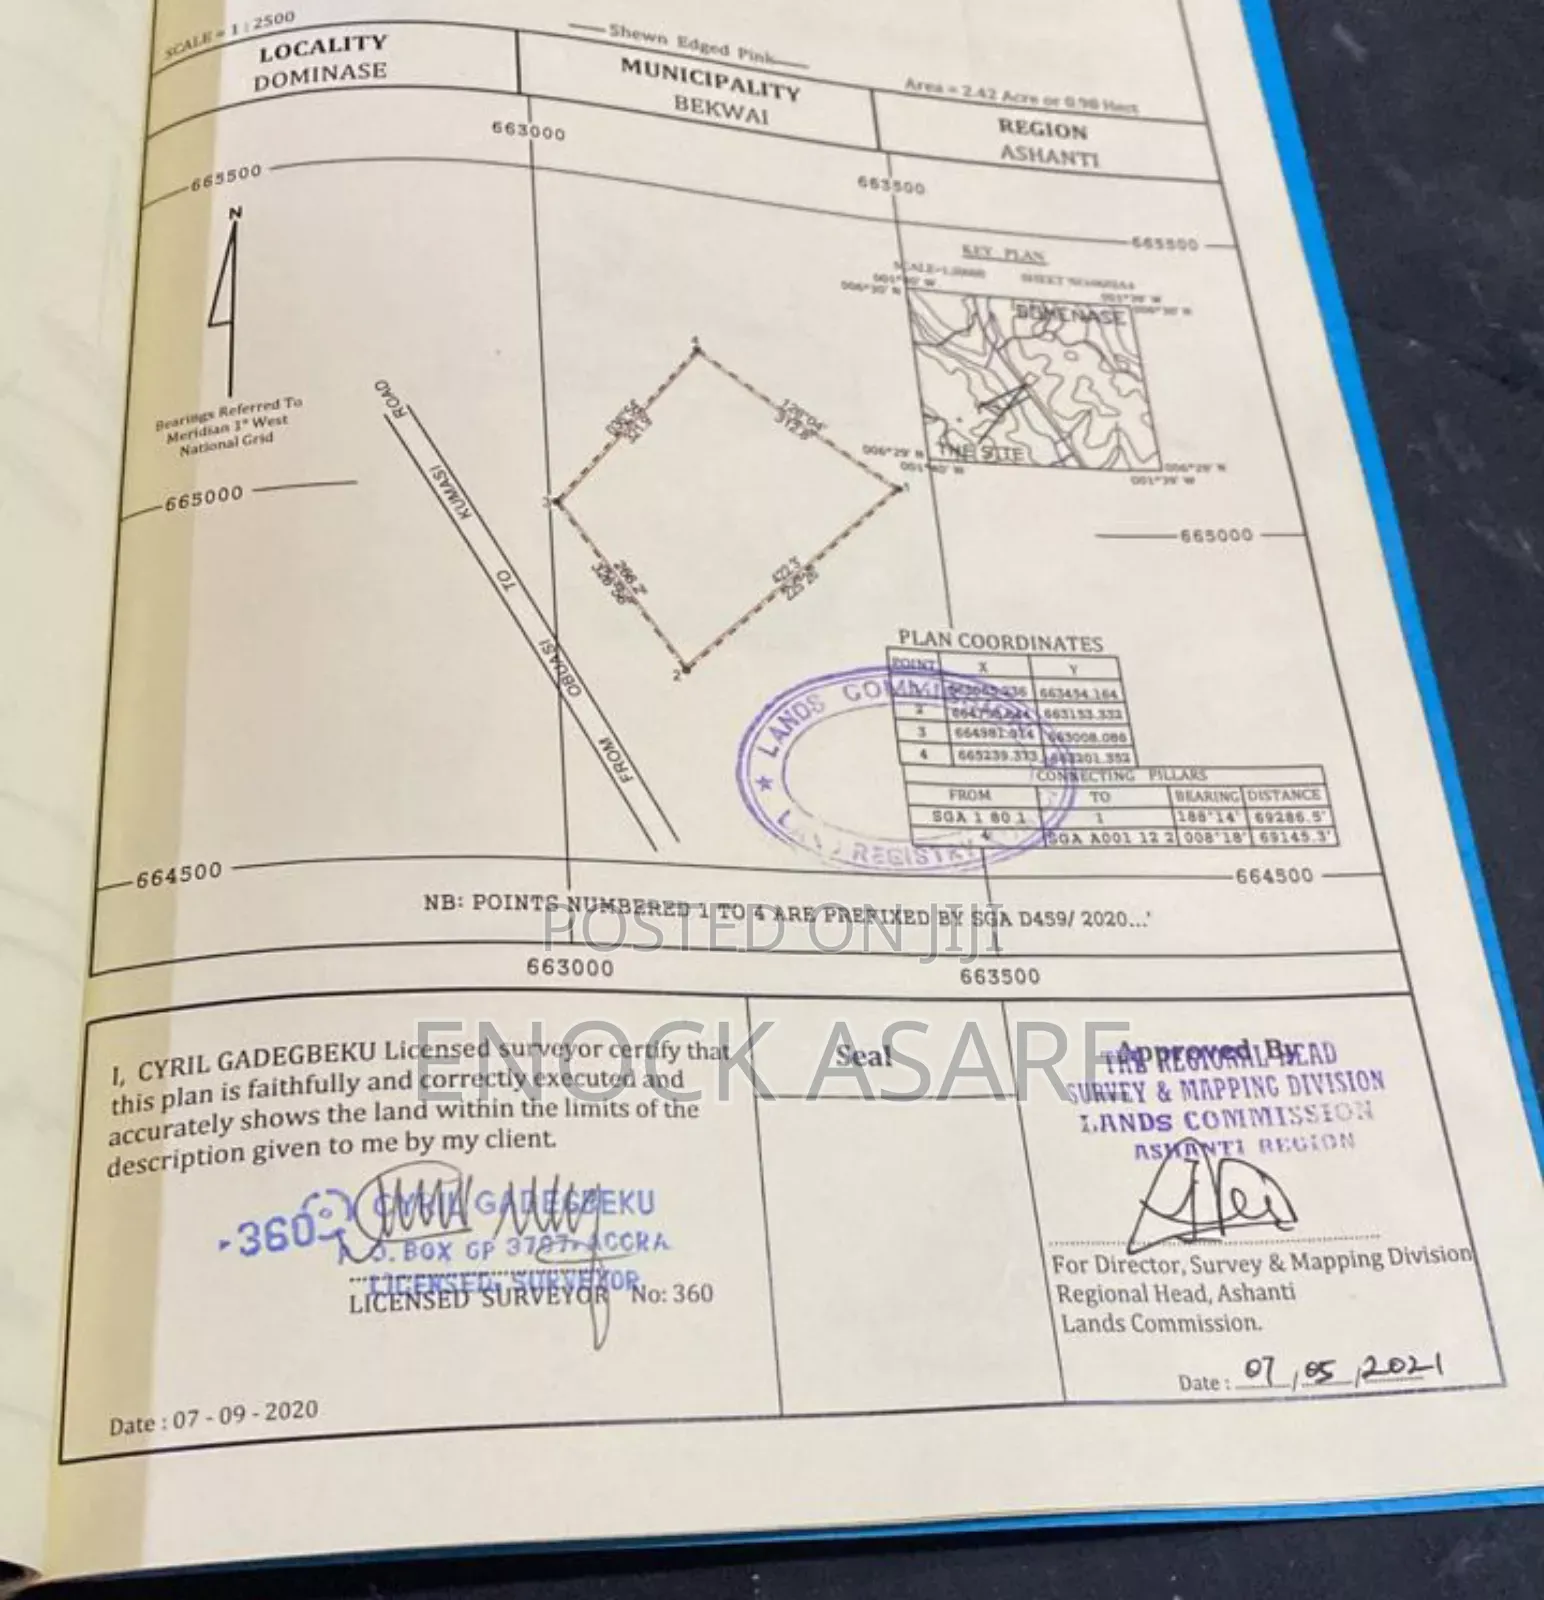 SCALE = 1 : 2500
Shewn Edged Pink
Area = 2.42 Acre or 0.98 Hect
LOCALITY
DOMINASE
MUNICIPALITY
BEKWAI
REGION
ASHANTI
663000
663500
665500
665500
N
Bearings Referred To
Meridian 1° West
National Grid
KEY PLAN
001°39' W
006°30' N
DOMENASE
THE SITE
006°29' N
001°40' W
006°29' N
001°39' W
4
128°04'
1
422.3'
2
266.2'
ROAD
KUMASI
TO
OBUASI
FROM
665000
665000
PLAN COORDINATES
POINT X Y
663454.164
2 663153.332
3 664981.014 663008.088
4 665239.373
CONNECTING PILLARS
FROM TO BEARING DISTANCE
SGA 1 80 1 1 188°14' 69286.5'
4 SGA A001 12 2 008°18' 69145.3'
LANDS COMMISSION
LAND REGISTRY
664500
664500
NB: POINTS NUMBERED 1 TO 4 ARE PREFIXED BY SGA D459/ 2020...'
POSTED ON JIJI
663000
663500
ENOCK ASARE
I, CYRIL GADEGBEKU Licensed surveyor certify that
this plan is faithfully and correctly executed and
accurately shows the land within the limits of the
description given to me by my client.
360
CYRIL GADEGBEKU
P. O. BOX GP 3797, ACCRA
LICENSED SURVEYOR
LICENSED SURVEYOR No: 360
Date : 07 - 09 - 2020
Seal
Approved By
THE REGIONAL HEAD
SURVEY & MAPPING DIVISION
LANDS COMMISSION
ASHANTI REGION
For Director, Survey & Mapping Division
Regional Head, Ashanti
Lands Commission.
Date : 07 / 05 / 2021